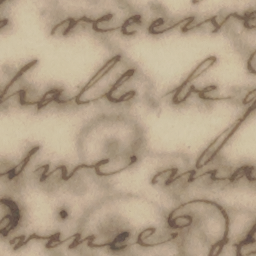 receive
shall be
we ma
Prince